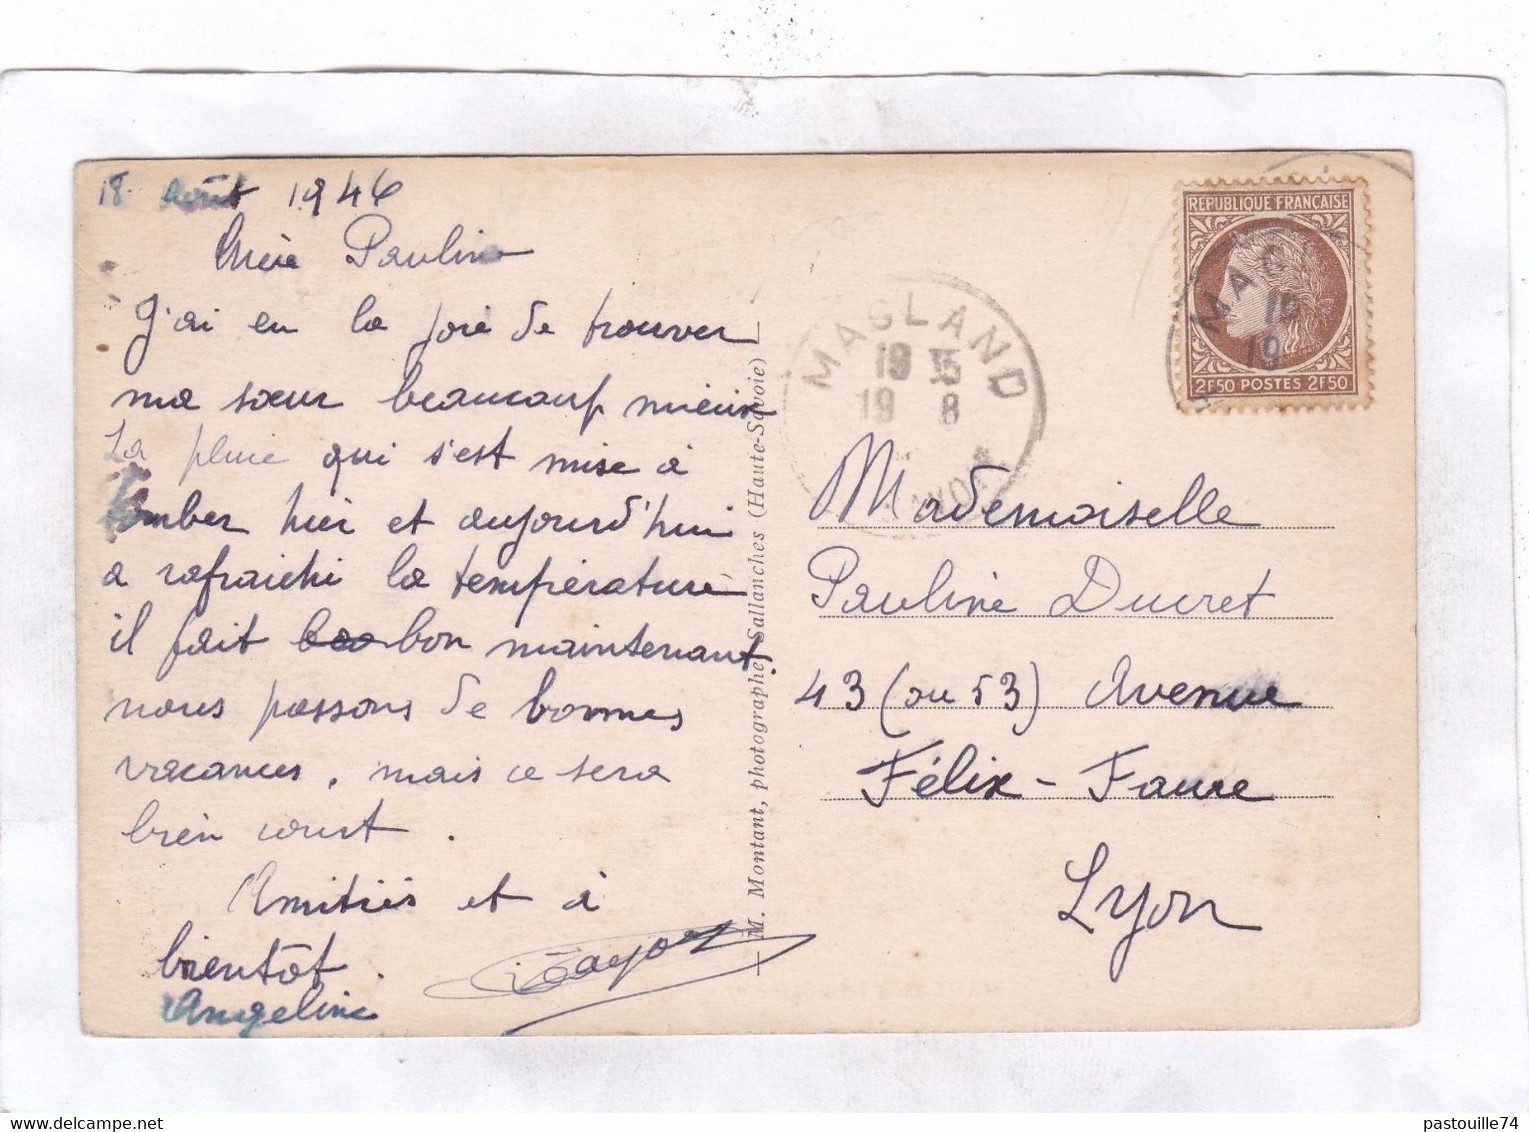 18 Août 1946
Chère Pauline
J'ai eu la joie de trouver
ma sœur beaucoup mieux
La pluie qui s'est mise à
tomber hier et aujourd'hui
a rafraichi la température
il fait bon maintenant.
nous passons de bonnes
vacances, mais ce sera
bien court.
Amitiés et à
bientôt.
Angeline
M. Montant, photographe, Sallanches (Haute-Savoie)
MAGLAND
19 15
19 8
SAVOIE
REPUBLIQUE FRANÇAISE
MAG
19
2F50 POSTES 2F50
Mademoiselle
Pauline Ducret
43 (ou 53) Avenue
Félix-Faure
Lyon
pastouille74